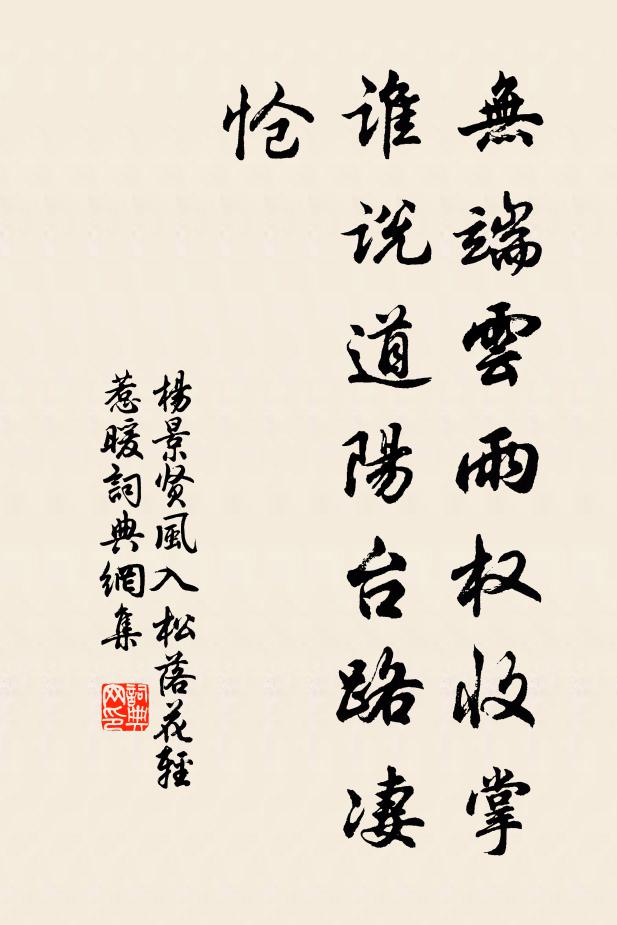 無端雲雨权收掌
谁说道陽台路凄
怆
楊景贤風入松落花轻
惹暖詞典網集
詞典
网印